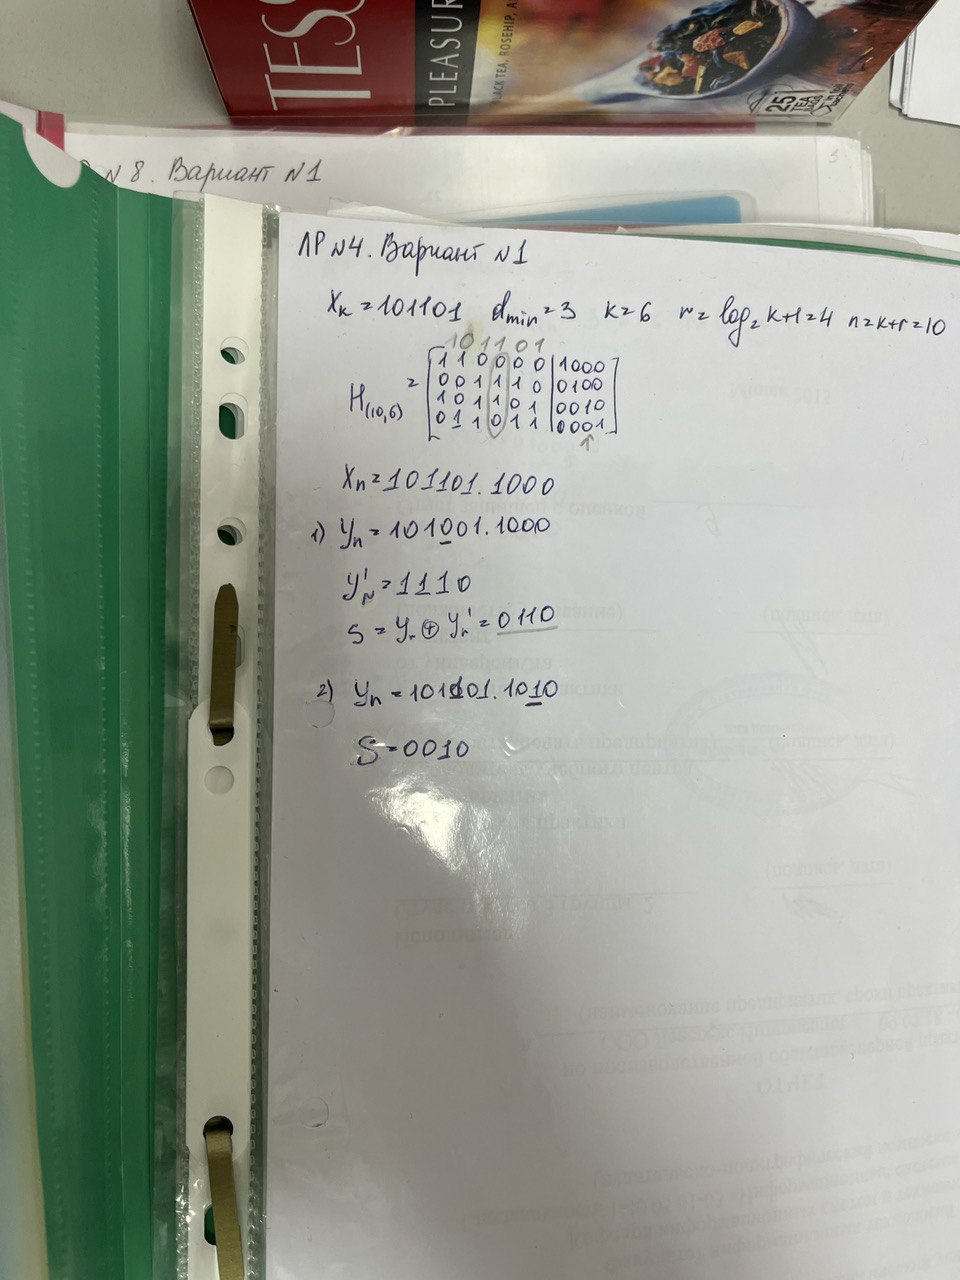 TESS
PLEASUR
BLACK TEA, ROSEHIP, A
25
TEA
BAGS
№8. Вариант №1
3
ЛР №4. Вариант №1
Xk = 101101 dmin = 3 k = 6 r = log2 k+1 = 4 n = k+r = 10
101101
1 1 0 0 0 0 | 1000
0 0 1 1 1 0 | 0100
H(10,6) = 1 0 1 1 0 1 | 0010
0 1 1 0 1 1 | 0001
↑
Xn = 101101.1000
1) Yn = 101001.1000
Y'r = 1110
S = Yr ⊕ Yr' = 0110
2) Yn = 101101.1010
S = 0010